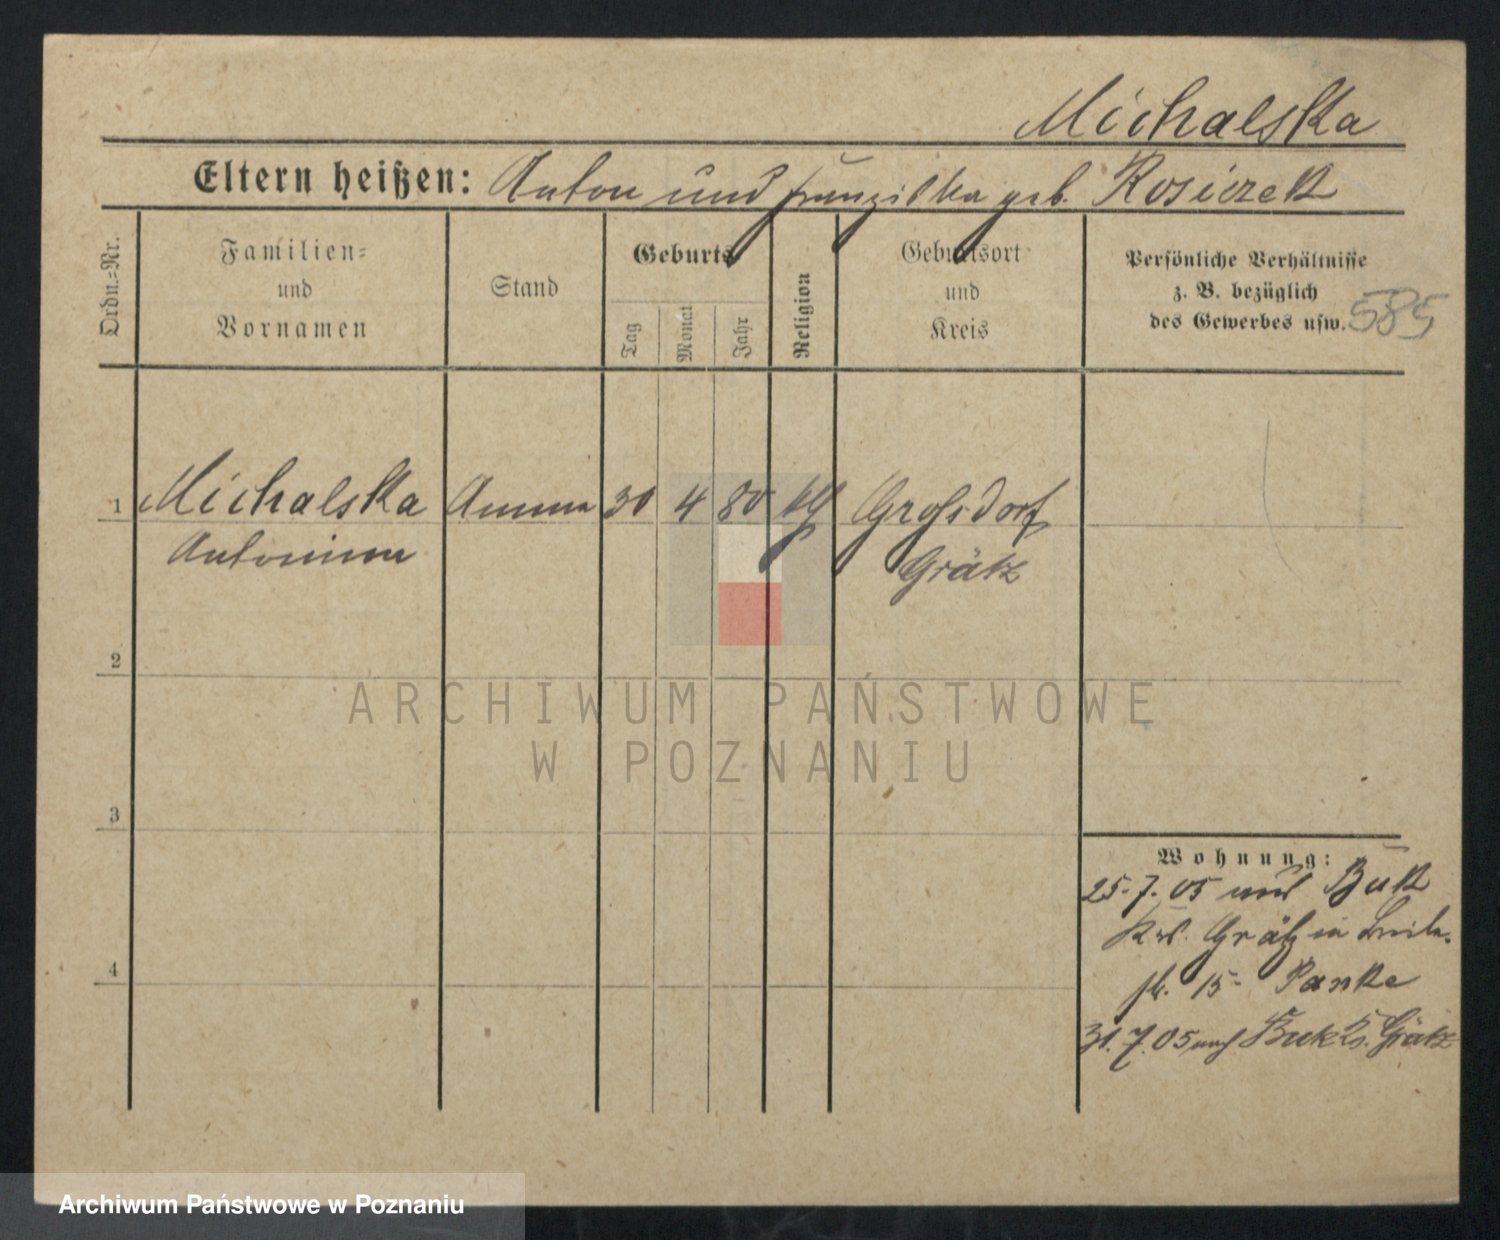 Michalska
Eltern heißen: Anton und Franziska geb. Rosiczek
Ordn.=Nr.
Familien=
und
Vornamen
Stand
Geburts
Tag
Monat
Jahr
Religion
Geburtsort
und
Kreis
Persönliche Verhältnisse
z. B. bezüglich
des Gewerbes usw.
585
1 Michalska Amme 30 4 80 kth Grossdorf
Antonina Grätz
2
3
4
Wohnung:
25.7.05 aus Buk
Krs. Grätz in
15 Panke
31.7.05 nach Buk Ks. Grätz
ARCHIWUM PAŃSTWOWE
W POZNANIU
Archiwum Państwowe w Poznaniu